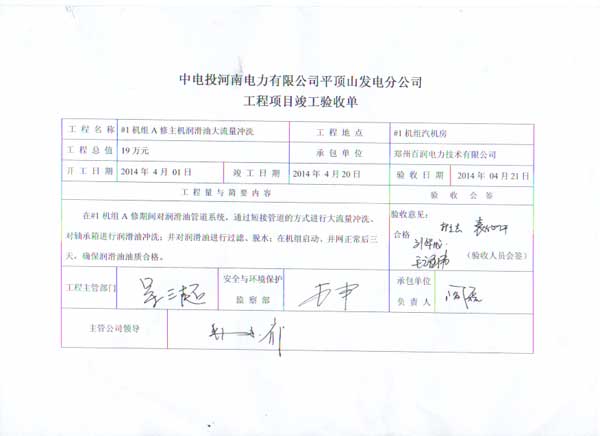 中电投河南电力有限公司平顶山发电分公司
工程项目竣工验收单
工程名称 #1 机组 A 修主机润滑油大流量冲洗 工程地点 #1 机组汽机房
工程总值 19 万元 承包单位 郑州百润电力技术有限公司
开工日期 2014 年 4 月 01 日 竣工日期 2014 年 4 月 20 日 验收日期 2014 年 04 月 21 日
工程量与简要内容 验收会签
在#1 机组 A 修期间对润滑油管道系统，通过短接管道的方式进行大流量冲洗、
对轴承箱进行润滑油冲洗；并对润滑油进行过滤、脱水；在机组启动、并网正常后三
天，确保润滑油油质合格。
验收意见：
合格
（验收人员会签）
工程主管部门 安全与环境保护
监察部 承包单位
负责人
主管公司领导